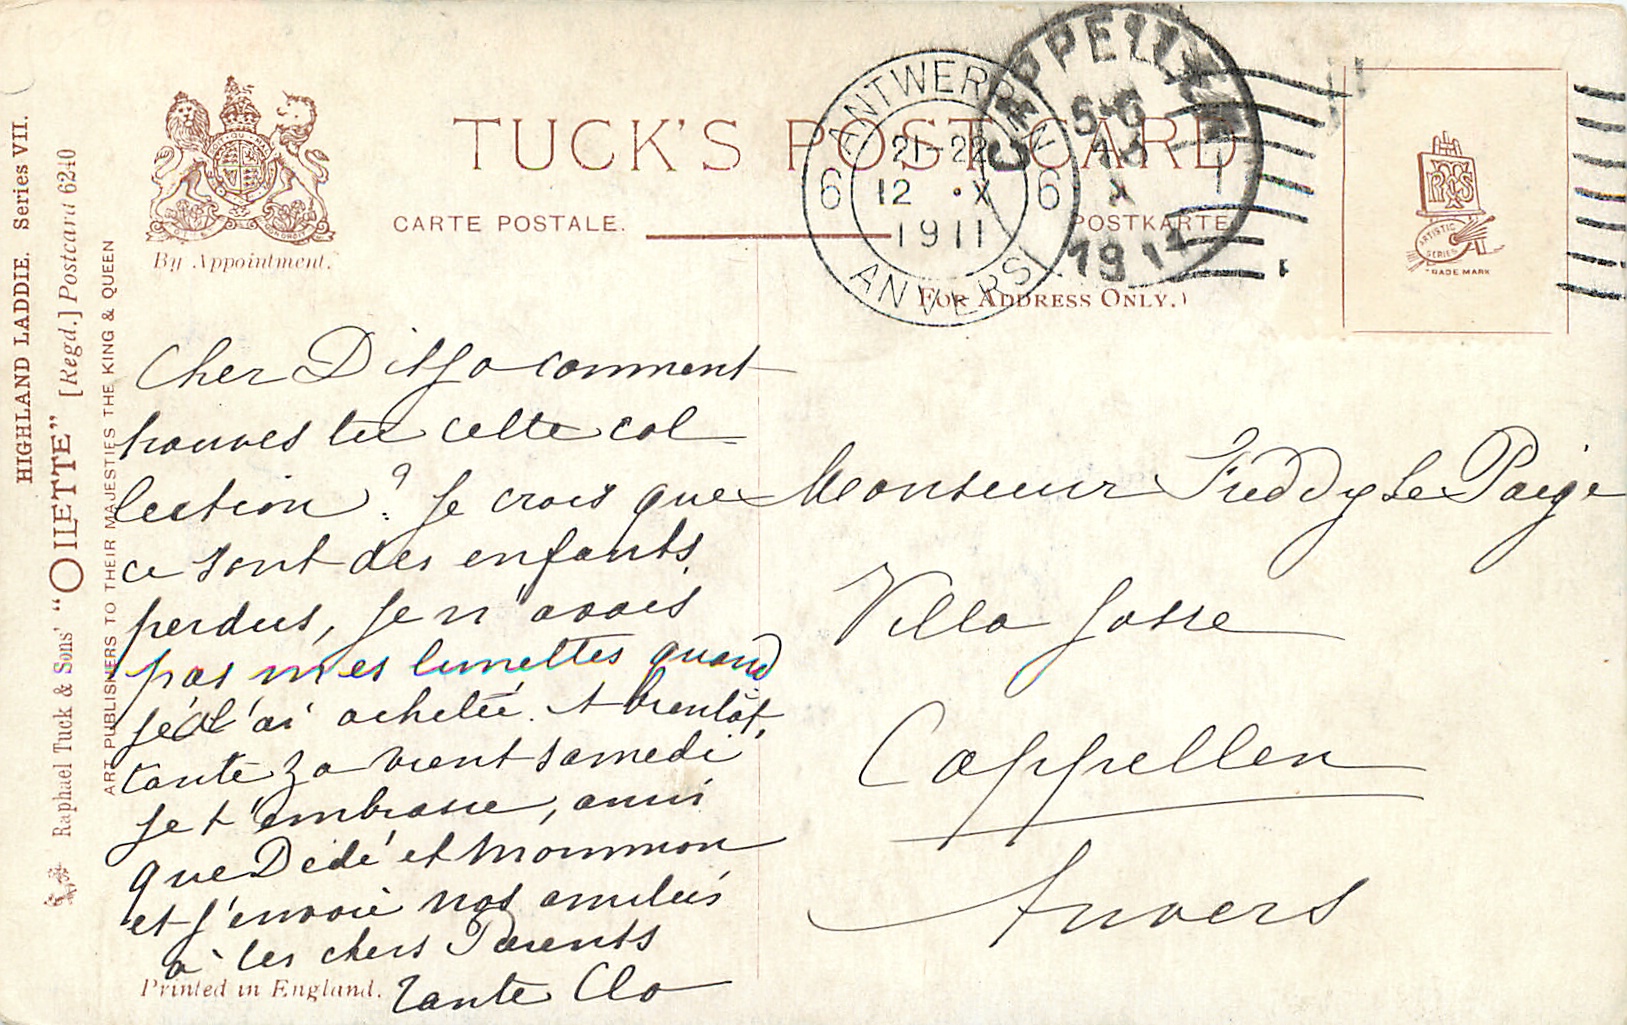 HIGHLAND LADDIE. Series VII.
Raphael Tuck & Sons' "OILETTE" [Regd.] Postcard 6240
ART PUBLISHERS TO THEIR MAJESTIES THE KING & QUEEN
By Appointment.
TUCK'S POST CARD
CARTE POSTALE.
POSTKARTE
FOR ADDRESS ONLY.)
ANTWERPEN
6 21-22 6
12 · X
1911
ANVERS
CAPPELLEN
5-6
X
ARTISTIC
SERIES
TRADE MARK
Cher comment
trouves tu cette col-
lection? Je crois que
ce sont des enfants
perdus, je n'avais
pas mes lunettes quand
je l'ai achetée. A bientôt,
tante Za vient samedi
je t'embrasse, ainsi
que Dédé et Mommon
et j'envoie nos amitiés
à tes chers Parents
Tante Clo
Monsieur Freddy Le Paige
Villa Josse
Cappellen
Anvers
Printed in England.